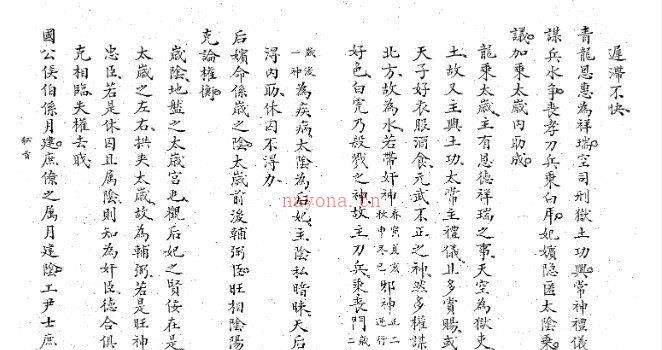 遲滯不快
青龍恩惠為祥瑞空司刑獄土功興常神禮儀
謀兵水爭喪孝刀兵乘白虎妃嬪隱匿太陰乘
議加乘太歲內助成
龍乘太歲主有恩德祥瑞之事天空為獄吏
土故又主興土功太常主禮儀止多賞賜或
天子好衣服酒食元武不正之神然多權謀
北方故為水若帶奸神春寅夏亥秋申冬巳邪神正二逆行
好色白虎乃殺戮之神故主刀兵乘喪門歲二
歲後一神為疾病太陰為后妃主陰私暗昧天后
得內助休囚不得力
后嬪命係歲之陰太歲前後輔弼臣旺相陰陽
克論權衡
歲陰地盤之太歲宮也觀后妃之賢佞在是
太歲之左右拱夾太歲故為輔弼若是旺神
忠臣若是休囚且屬陰則知為奸臣德合俱
克相臨失權去職
國公侯伯係月建庶僚之屬月建陰工尹士庶
秘旨
nayona.cn